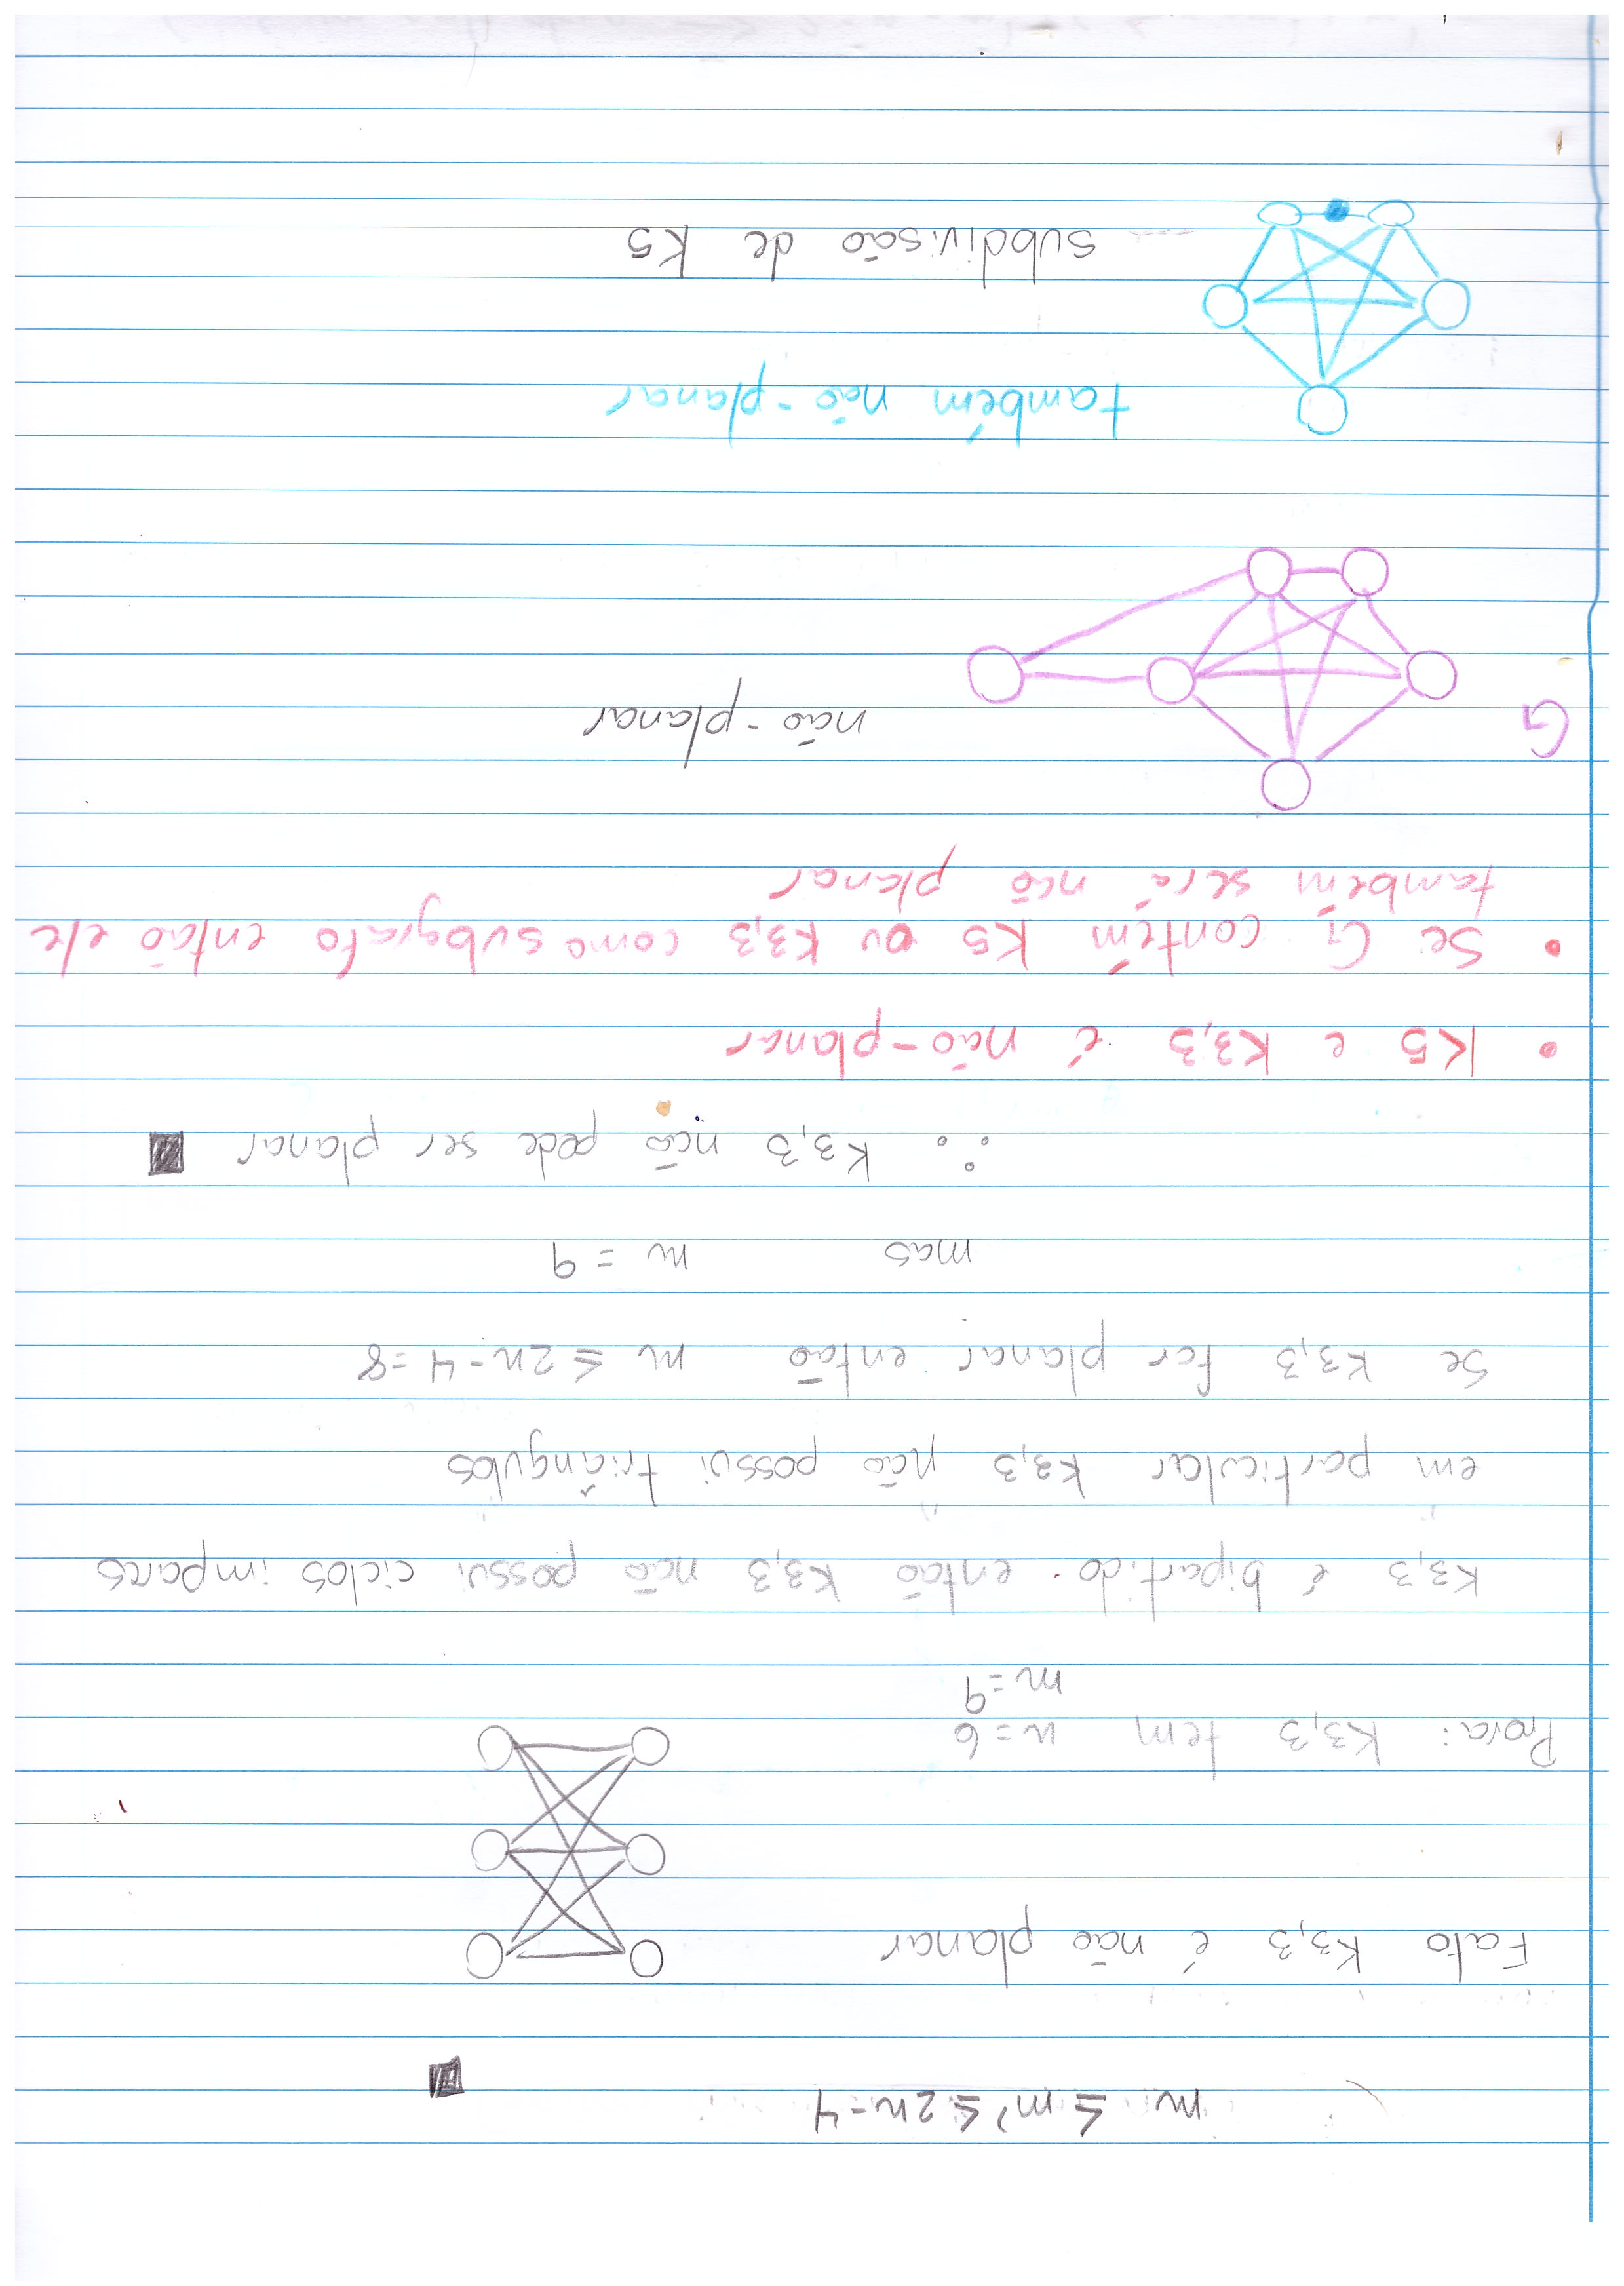 m ≤ m' ≤ 2n-4
Fato K3,3 é não planar
Prova: K3,3 tem n=6
m=9
K3,3 é bipartido. então K3,3 não possui ciclos impares
em particular K3,3 não possui triângulos
Se K3,3 for planar então m ≤ 2n-4=8
mas m = 9
∴ K3,3 não pode ser planar
• K5 e K3,3 é não-planar
• Se G contém K5 ou K3,3 como subgrafo então ele
também será não planar
G não-planar
também não-planar
subdivisão de K5